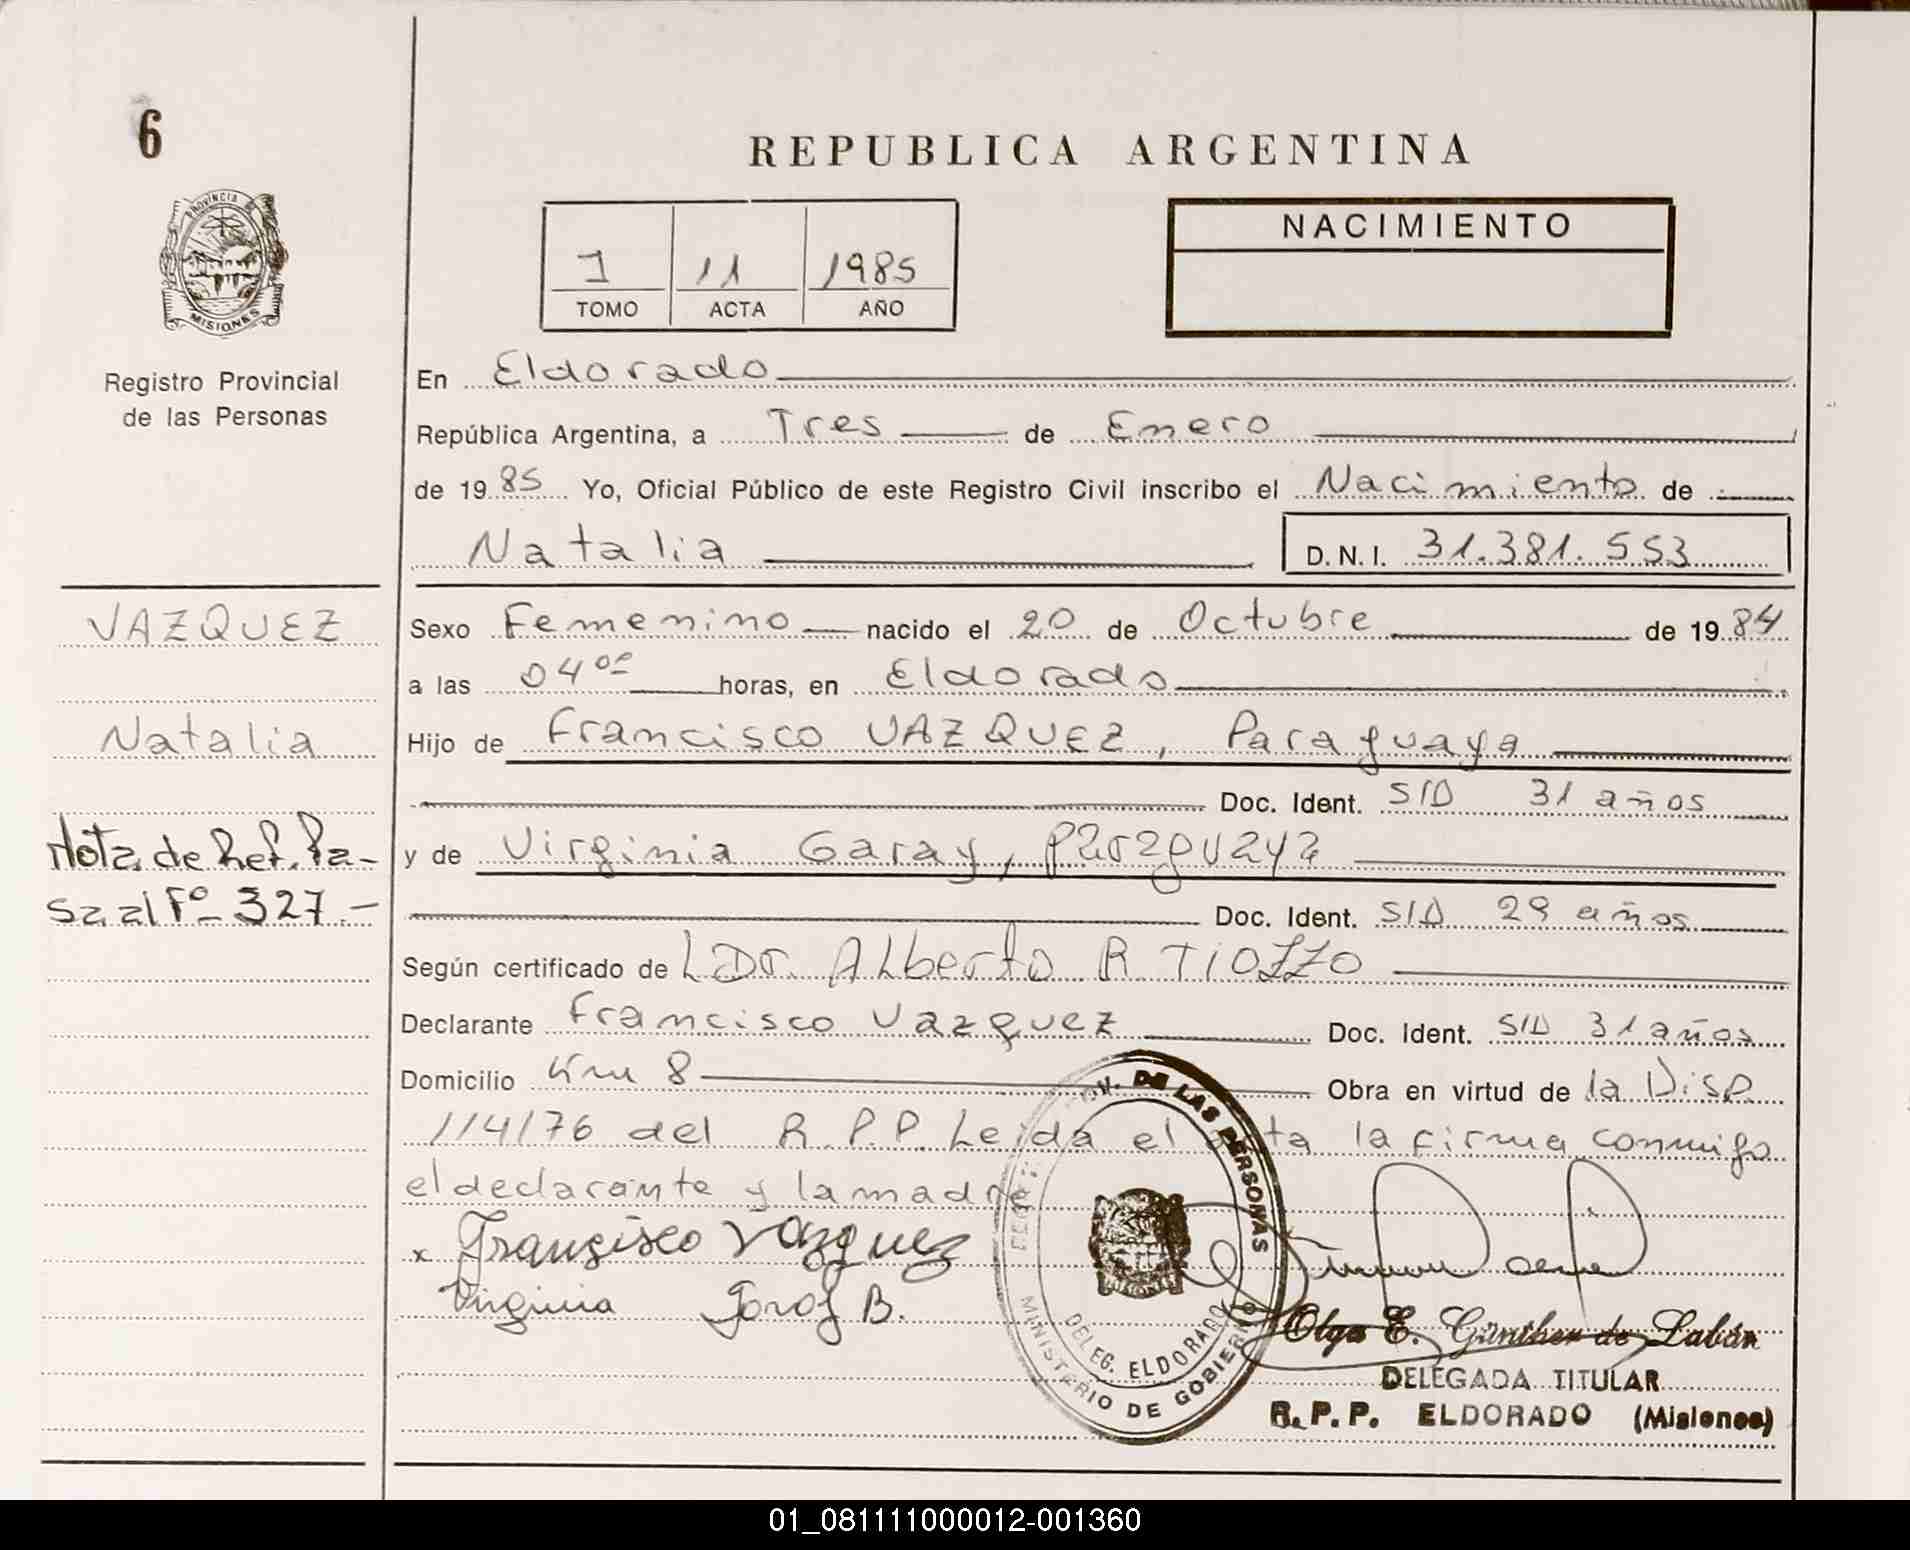 6
REPUBLICA ARGENTINA
PROVINCIA
MISIONES
Registro Provincial
de las Personas
I 11 1985
TOMO ACTA AÑO
NACIMIENTO
En Eldorado
República Argentina, a Tres de Enero
de 1985 Yo, Oficial Público de este Registro Civil inscribo el Nacimiento de
Natalia D.N.I. 31.381.553
VAZQUEZ
Natalia
Nota de Ref. Pa-
sa al Fº 327.-
Sexo Femenino nacido el 20 de Octubre de 1984
a las 04 00 horas, en Eldorado
Hijo de Francisco VAZQUEZ, Paraguaya
Doc. Ident. S/D 31 años
y de Virginia Garay, paraguaya
Doc. Ident. S/D 29 años
Según certificado de LDr. Alberto R TIOZZO
Declarante Francisco Vazquez Doc. Ident. S/D 31 años
Domicilio Km 8 Obra en virtud de la Disp.
114/76 del R.P.P. Leida el acta la firma conmigo
el declarante y la madre
x Francisco Vazquez
Virginia B.
PROV. DE LAS PERSONAS
MINISTERIO DE GOBIERNO
DELEG. ELDORADO
Olga E. Günther de Labán
DELEGADA TITULAR
R.P.P. ELDORADO (Misiones)
01_081111000012-001360